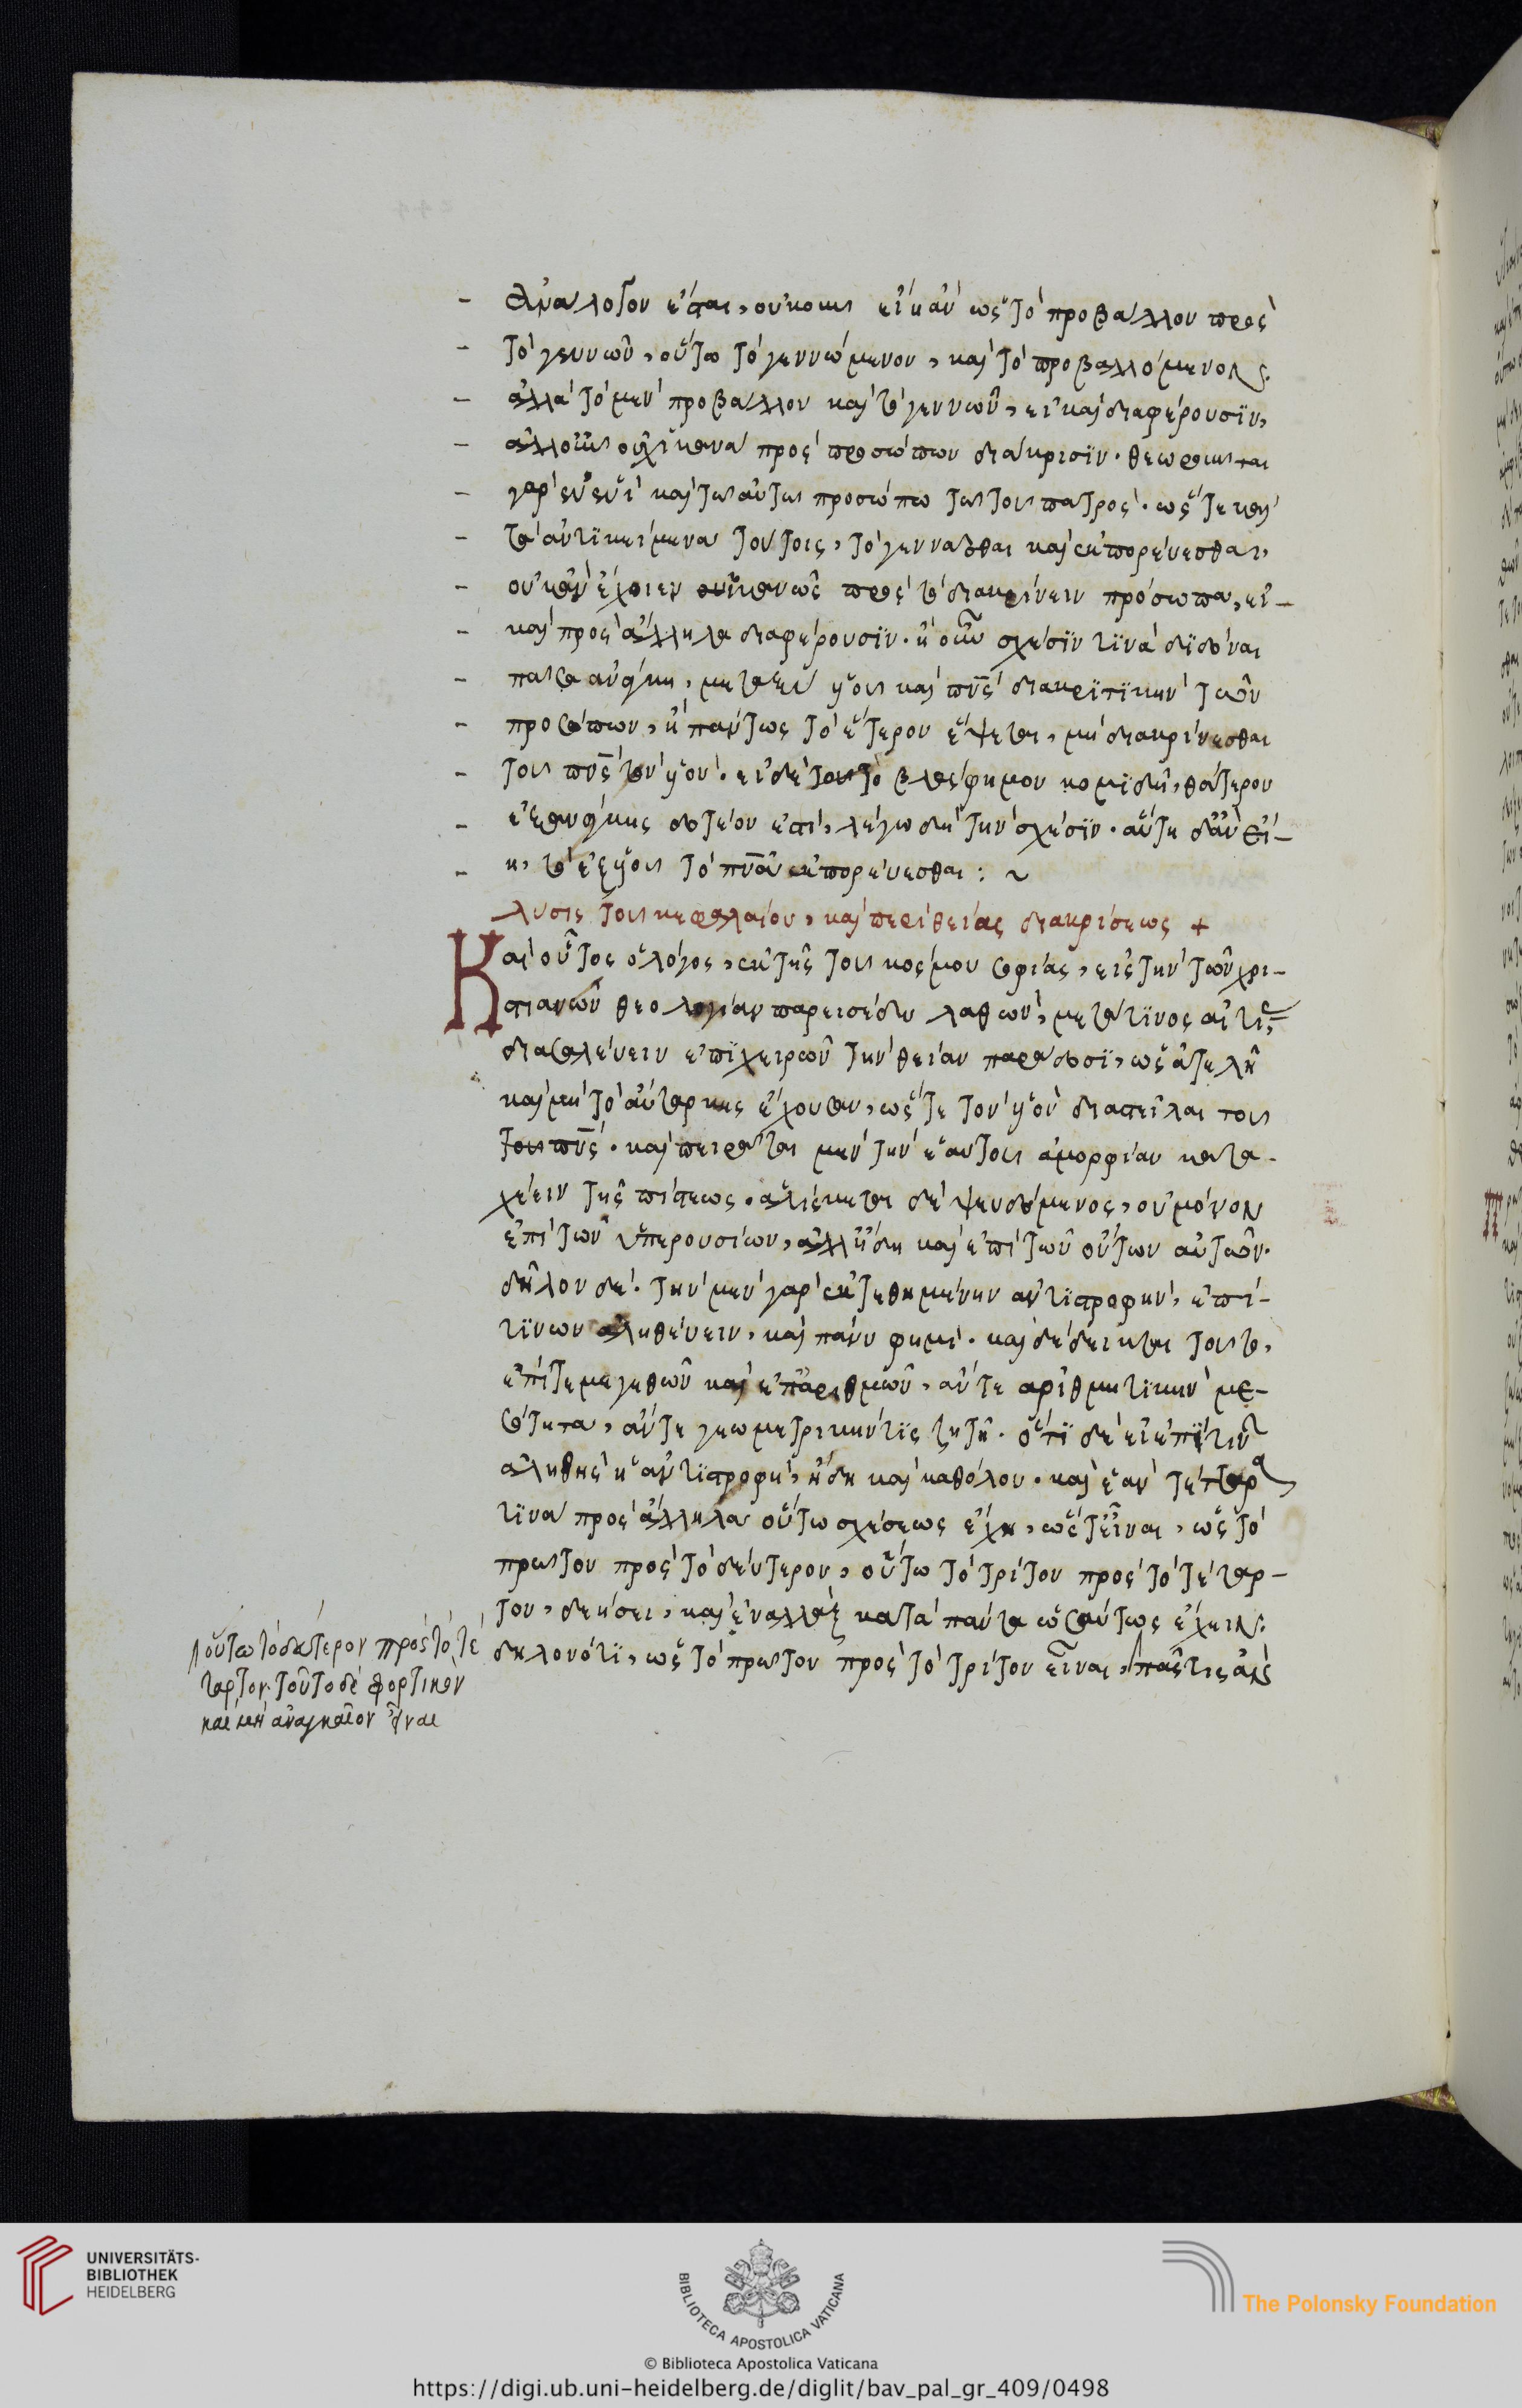 ἀνάλογον ἔσται, οὐκοῦν εἰ κἂν ὡς τὸ προβάλλον πρὸς
τὸ γεννῶν, οὕτω τὸ γεννώμενον, καὶ τὸ προβαλλόμενον.
ἀλλὰ τὸ μὲν προβάλλον καὶ τὸ γεννῶν, εἰ καὶ διαφέρουσιν,
ἀλλ' οὖν οὐχ ἱκανὰ πρὸς προσώπων διάκρισιν. θεωρεῖται
γὰρ ἐν ἑνὶ καὶ τῶ αὐτῶ προσώπω τῶ τοῦ πατρός. ὥστε καὶ
τὰ ἀντικείμενα τούτοις, τὸ γεννᾶσθαι καὶ ἐκπορεύεσθαι,
οὐκ ἂν ἔχοιεν ἱκανῶς πρὸς τὸ διακρίνειν πρόσωπα, εἰ
καὶ πρὸς ἄλληλα διαφέρουσιν. ἢ οὖν σχέσιν τινὰ διδόναι
πᾶσα ἀνάγκη, μεταξὺ υἱοῦ καὶ πνς διακριτικὴν τῶν
προσώπων, ἢ πάντως τὸ ἕτερον ἕψεται, μὴ διακρίνεσθαι
τοῦ πνς τὸν υἱόν. εἰ δὲ τοῦτο βλάσφημον κομιδῆ, θάτερον
ἐξανάγκης δοτέον ἐστί, λέγω δὴ τὴν σχέσιν. αὕτη δ' ἂν εἴ-
η, τὸ ἐξ υἱοῦ τὸ πνα ἐκπορεύεσθαι : ~
λύσις τοῦ κεφαλαίου, καὶ περὶ θείας διακρίσεως +
Καὶ οὗτος ὁ λόγος, ἐκ τῆς τοῦ κόσμου σοφίας, εἰς τὴν τῶν χρι-
στιανῶν θεολογίαν παρεισέδυ λαθών, μετά τινος αἰτίας
διασαλεύειν ἐπιχειρῶν τὴν θείαν παράδοσι, ὡς ἀτελῆ
καὶ μὴ τὸ αὔταρκες ἔχουσαν, ὥστε τὸν υἱὸν διαστεῖλαι τοῦ
τοῦ πνς. καὶ πειρᾶται μὲν τὴν ἑαυτοῦ ἀμορφίαν κατα-
χέειν τῆς πίστεως. ἁλίσκεται δὲ ψευδόμενος, οὐ μόνον
ἐπὶ τῶν ὑπερουσίων, ἀλλ' ἤδη καὶ ἐπὶ τῶν ὄντων αὐτῶν.
δῆλον δέ. τὴν μὲν γὰρ ἐκτεθημένην ἀντιστροφήν, ἐπί
τινων ἀληθεύειν, καὶ πάνυ φημί. καὶ δέδεικται τοῦτο,
ἐπί τε μεγεθῶν καὶ ἐπ' ἀριθμῶν, ἄν τε ἀριθμητικὴν με-
σότητα, ἄν τε γεωμετρικήν τις ζητῆ. ὅτι δὲ εἰ ἐπί τινων
ἀληθὴς ἡ ἀντιστροφή, ἤδη καὶ καθόλου. καὶ ἐὰν τέτταρα
τινὰ πρὸς ἄλληλα οὕτω σχέσεως ἔχη, ὥστ' εἶναι, ὡς τὸ
πρῶτον πρὸς τὸ δεύτερον, οὕτω τὸ τρίτον πρὸς τὸ τέταρ-
τον, δεήσει, καὶ ἐναλλὰξ κατὰ πάντα ὡσαύτως ἔχειν.
δηλονότι, ὡς τὸ πρῶτον πρὸς τὸ τρίτον εἶναι, πᾶς τις ἂν
οὕτω τὸ δεύτερον πρὸς τὸ τέ
ταρτον. τοῦτο δὲ φορτικὸν
καὶ μὴ ἀναγκαῖον εἶναι
UNIVERSITÄTS-
BIBLIOTHEK
HEIDELBERG
BIBLIOTECA APOSTOLICA VATICANA
The Polonsky Foundation
© Biblioteca Apostolica Vaticana
https://digi.ub.uni-heidelberg.de/diglit/bav_pal_gr_409/0498